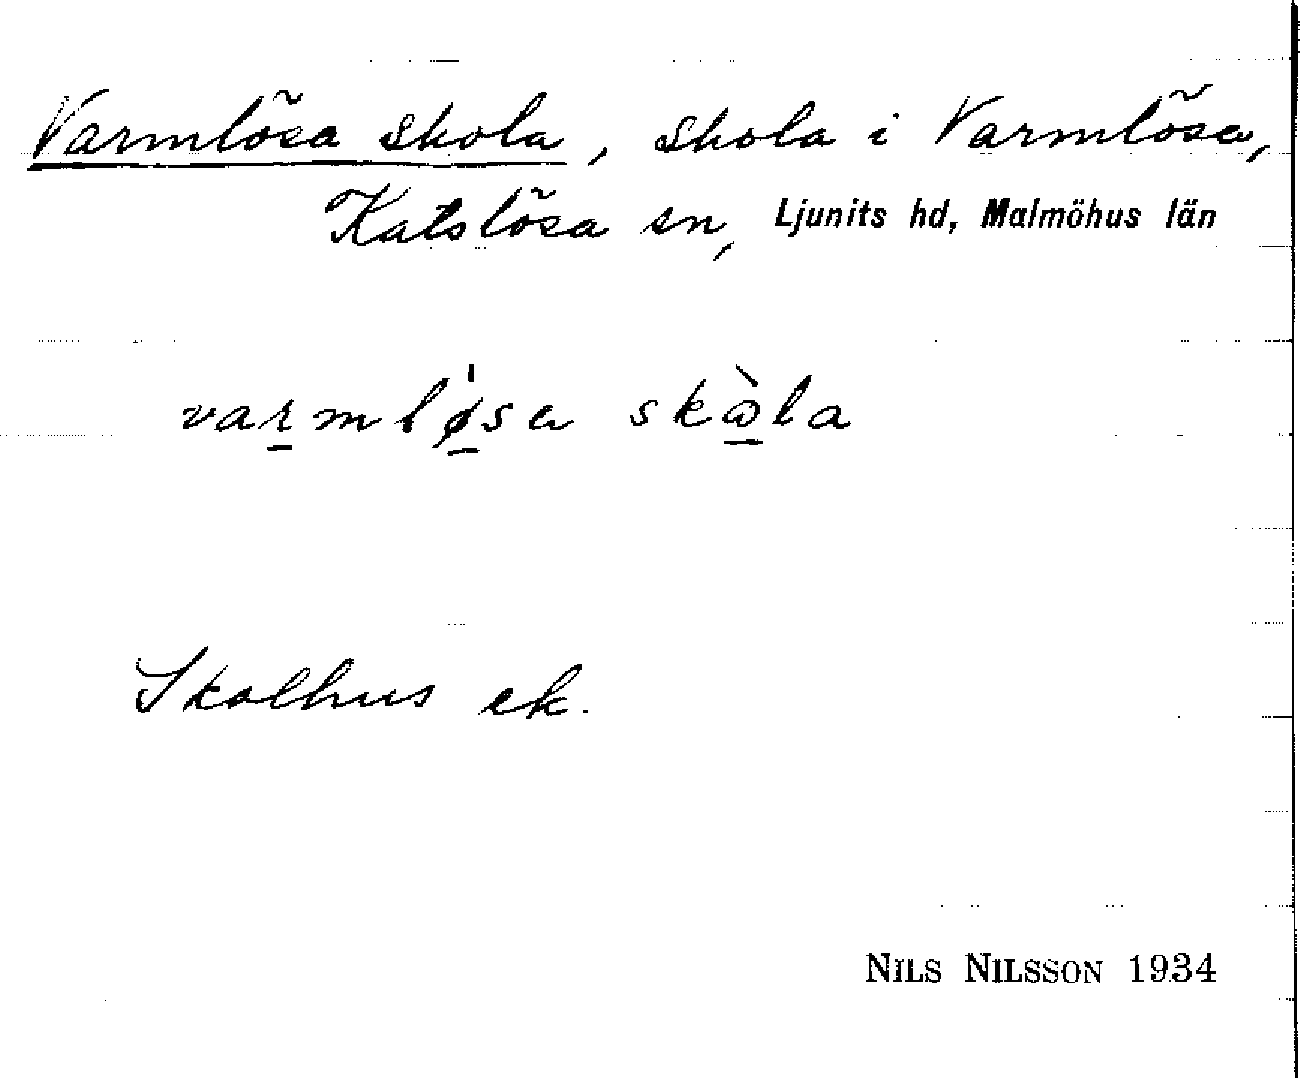 Varmlösa skola, skola i Varmlösa,
Katslösa sn, Ljunits hd, Malmöhus län
varmlǿ̱sa skὼ̱la
Skolhus ek.
NILS NILSSON 1934